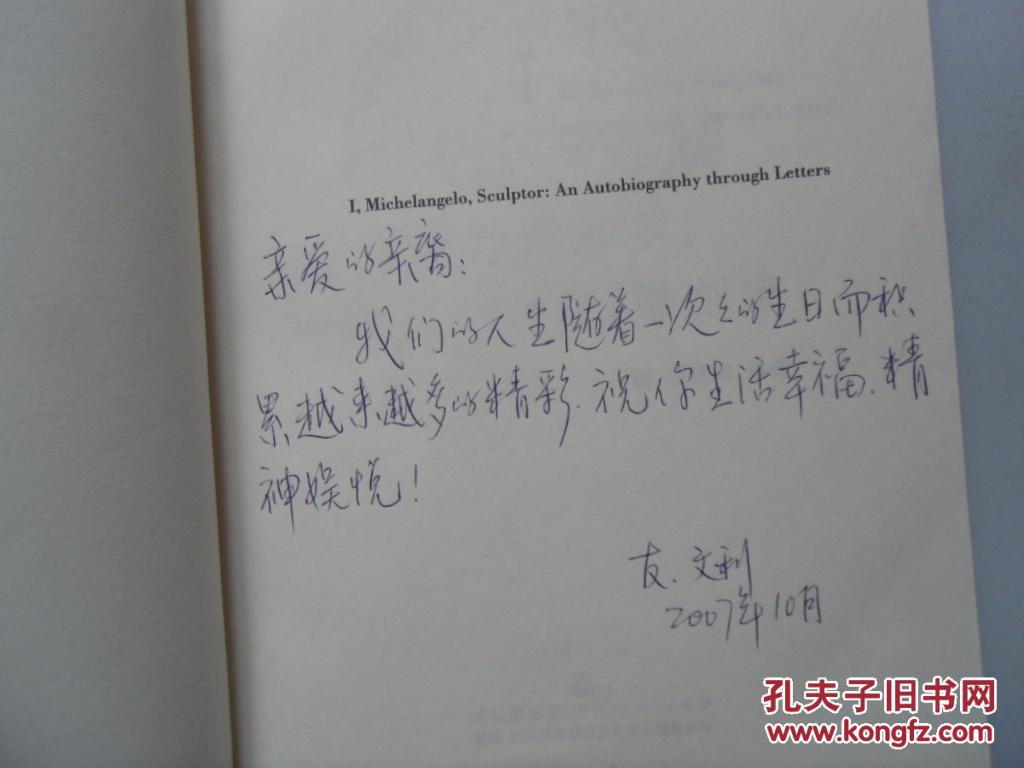 I, Michelangelo, Sculptor: An Autobiography through Letters
亲爱的亲裔:
我们的人生随着一次次的生日而积
累越来越多的精彩.祝你生活幸福.精
神娱悦!
友.文利
2007年10月
孔夫子旧书网
www.kongfz.com